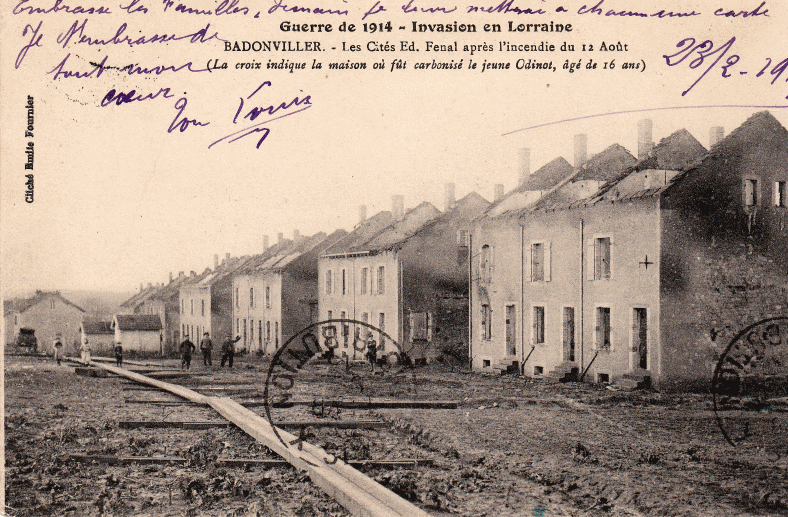 Embrasse les Familles, demain je leur mettrai a chacun une carte
Je t'embrasse de
tout mon
coeur.
Ton Louis
23/2-19
Guerre de 1914 - Invasion en Lorraine
BADONVILLER. - Les Cités Ed. Fenal après l'incendie du 12 Août
(La croix indique la maison où fût carbonisé le jeune Odinot, âgé de 16 ans)
Cliché Emile Fournier